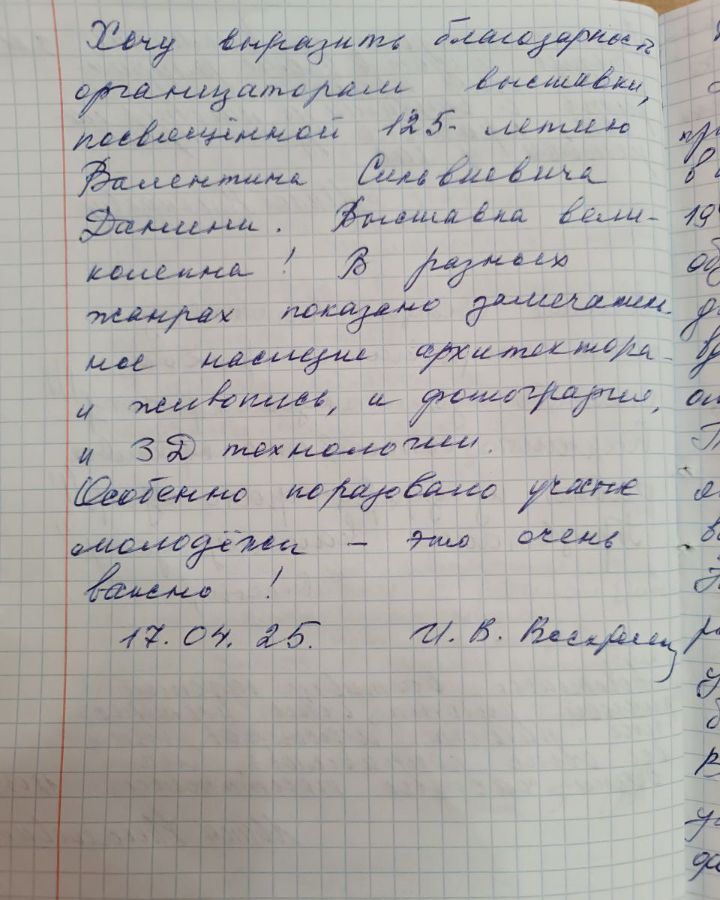 Хочу выразить благодарность
организаторам выставки,
посвящённой 125-летию
Валентина Сильвиевича
Данини. Выставка вели-
колепна! В разных
жанрах показано замечатель-
ное наследие архитектора -
и живопись, и фотография,
и 3D технологии.
Особенно порадовало участие
молодёжи – это очень
важно!
17.04.25. И. В.